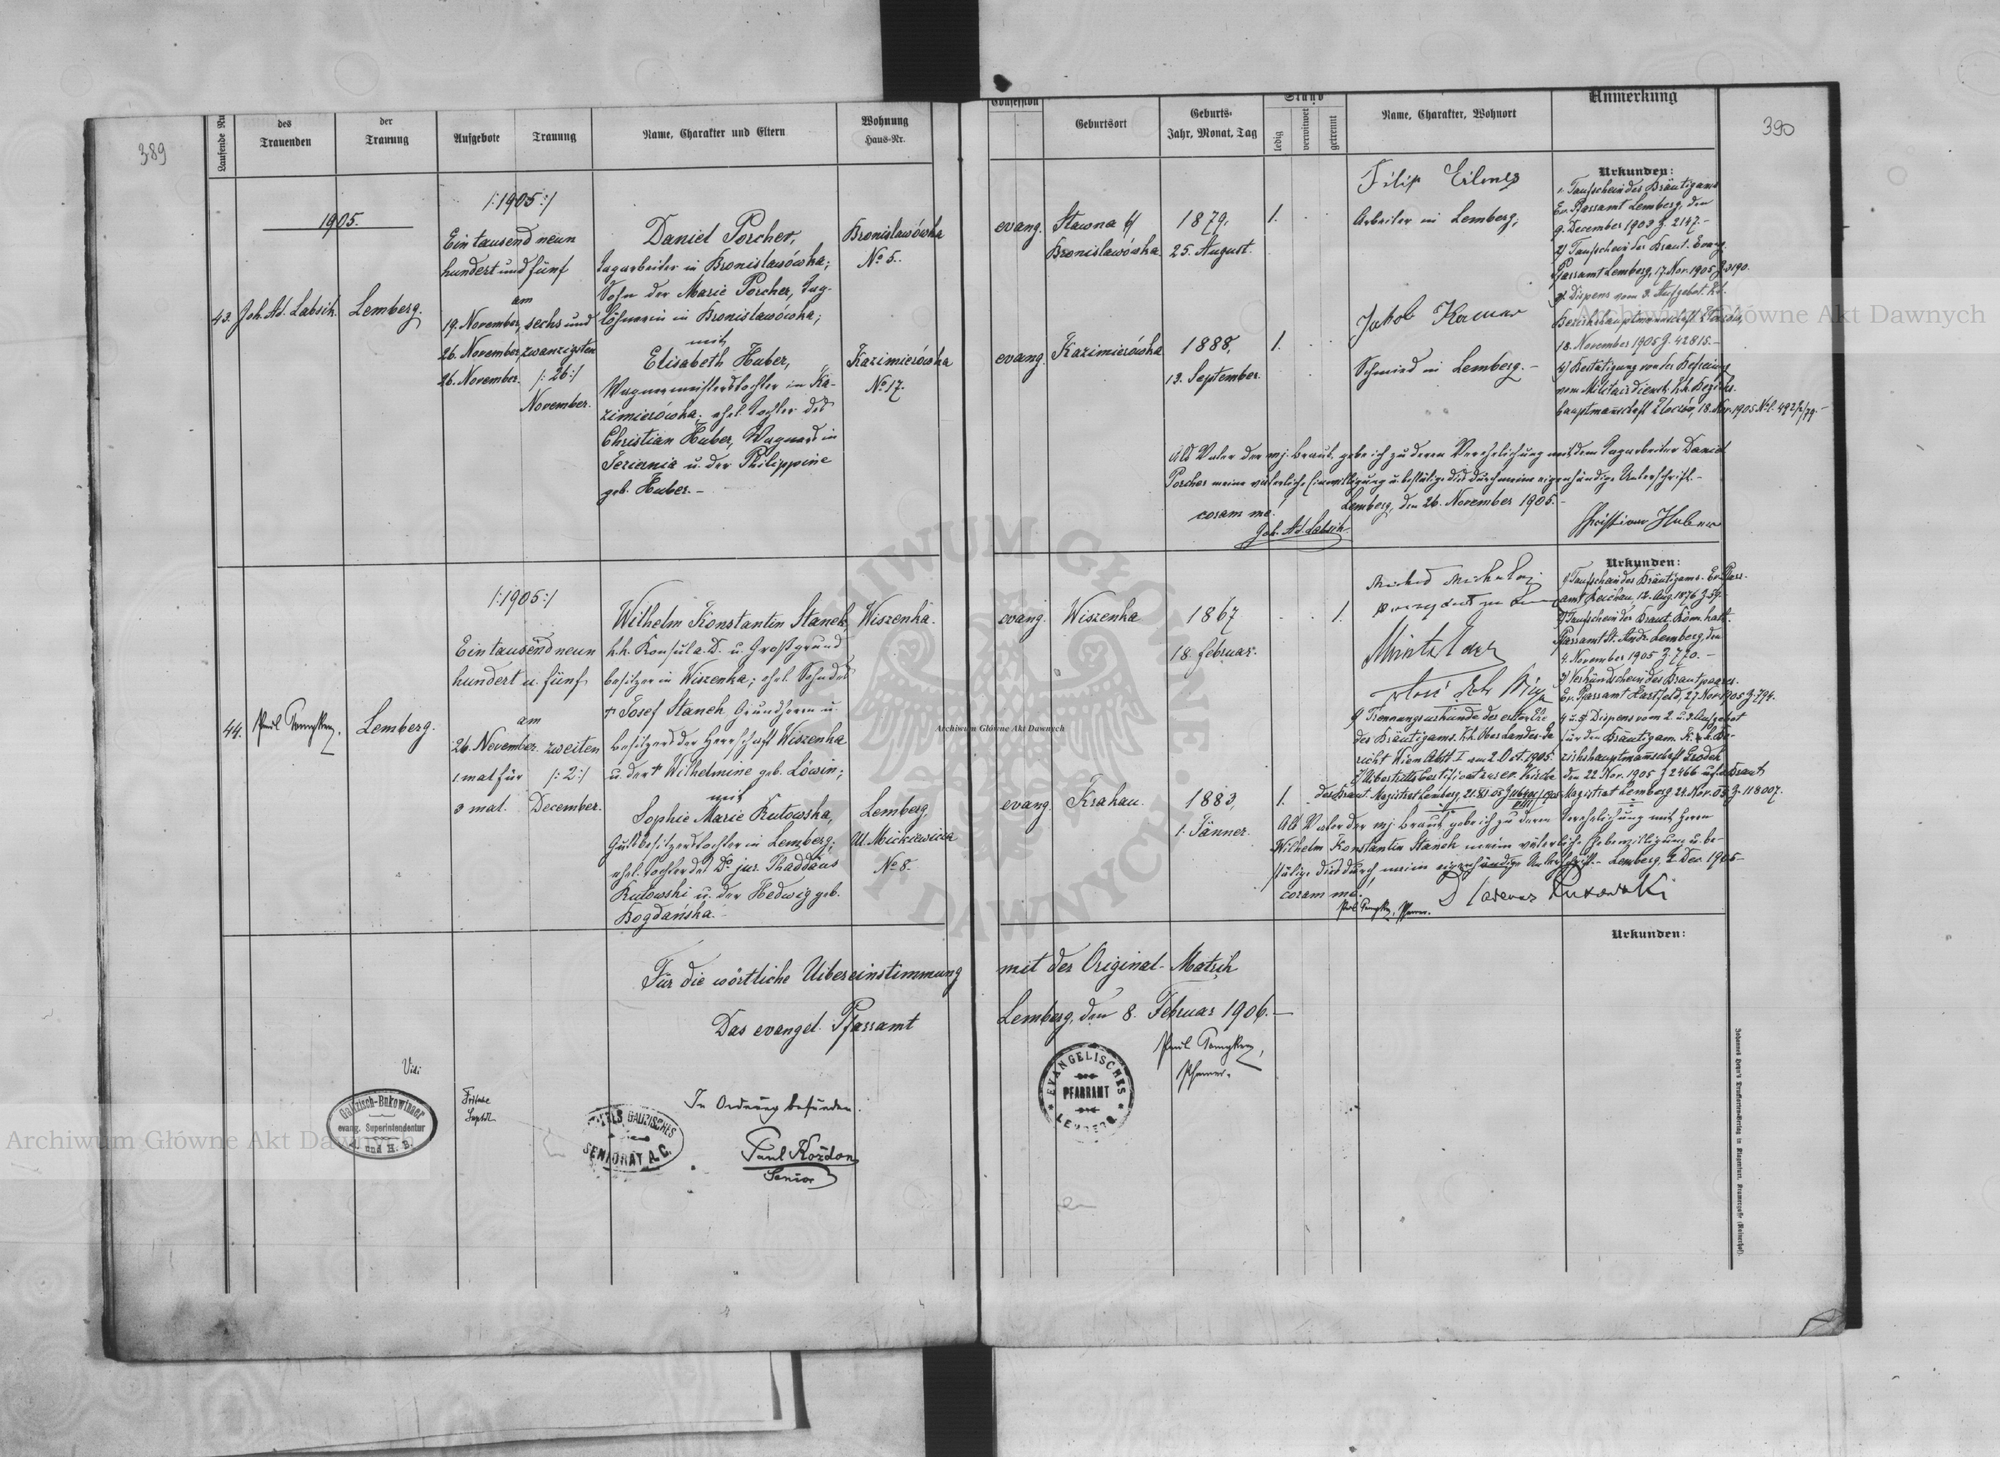 389
390
Laufende Nu
des
Trauenden
der
Trauung
Aufgebote
Trauung
Name, Charakter und Eltern
Wohnung
Haus-Nr.
Confession
Geburtsort
Geburts-
Jahr, Monat, Tag
Stand
ledig
verwitwet
getrennt
Name, Charakter, Wohnort
Anmerkung
1905.
43.
Joh. Ad. Labsik.
Lemberg.
/:1905:/
Ein tausend neun
hundert und fünf
am
19. November, sechs und
26. November, zwanzigsten
26. November. /:26:/
November.
Daniel Porcher,
Tagarbeiter in Bronislawówka;
Sohn der Marie Porcher, Tag-
löhnerin in Bronislawówka;
mit
Elisabeth Huber,
Wagnermeisterstochter in Ka-
zimierówka; ehel. Tochter des
Christian Huber, Wagners in
Jeziernia u. der Philippine
geb. Huber.-
Bronislawówka
No 5.
Kazimierówka
No 17.
evang.
Slawna
Bronislawówka
1879,
25. August.
1.
evang.
Kazimierówka
1888,
13. September.
1.
Filip
Arbeiter in Lemberg;
Jakob
Schmied in Lemberg.-
Urkunden:
1. Taufschein des Bräutigams
Ev. Pfarramt Lemberg, den
9. December 1903 Z. 2147.-
2) Taufschein der Braut. Evang.
Pfarramt Lemberg, 17. Nov. 1905
3) Dispens vom 3. Aufgebot. k.k.
Bezirkshauptmannschaft
18. November 1905 Z. 42815.-
4) Bestätigung von der Befreiung
vom Militärdienst. k.k. Bezirks-
hauptmannschaft Zloczów, 18. Nov. 1905
Als Vater der mj. Braut gebe ich zu deren Verehelichung mit dem Tagarbeiter Daniel
Porcher meine väterliche Einwilligung u. bestätige dies durch meine eigenhändige Unterschrift.-
Lemberg, den 26. November 1905.-
coram me:
Joh. Ad. Labsik.
Christian Huber
44.
Lemberg.
/:1905:/
Ein tausend neun
hundert u. fünf,
am
26. November. zweiten
1 mal für /:2:/
3 mal. December.
Wilhelm Konstantin Stanek,
k.k. Konsul a. D. u. Großgrund
besitzer in Wiszenka; ehel. Sohn des
† Josef Stanek Grundherrn u.
Besitzers der Herrschaft Wiszenka
u. der † Wilhelmine geb. Löwin;
mit
Sophie Marie Rutowska,
Gutsbesitzerstochter in Lemberg;
ehel. Tochter des Dr. jur. Thaddäus
Rutowski u. der Hedwig geb.
Bogdańska.-
Wiszenka.
Lemberg,
Ul. Mickiewicza
No 8.
evang.
Wiszenka
1867
18. Februar.
1.
evang.
Krakau.
1883,
1. Jänner.
1.
Urkunden:
1) Taufschein des Bräutigams. Ev. Pfarr-
amt Reichau, 12. Aug. 1876
2) Taufschein der Braut. Röm. kath.
Pfarramt St. Andr. Lemberg, den
4. November 1905 Z. 770.-
3) Verkündschein des Brautpaares.
Ev. Pfarramt Hartfeld, 27. Nov. 1905 Z. 794.
4 u. 5) Dispens vom 2. u. 3. Aufgebot
für den Bräutigam k.k. Be-
zirkshauptmannschaft Grodek
den 22. Nov. 1905 Z 2466 u. für Braut
Magistrat Lemberg 24. Nov. 05 Z. 118007.
Trennungsurkunde der ersten Ehe
des Bräutigams. k.k. Oberlandes-Ge
richt Wien Abt. I am 2. Oct. 1905.
der Braut. Magistrat Lemberg,
Als Vater der mj. Braut gebe ich zu deren Verehelichung mit Herrn
Wilhelm Konstantin Stanek meine väterliche Einwilligung u. be-
stätige dies durch meine eigenhändige Unterschrift.- Lemberg, 2. Dec. 1905-
coram me:
Rutowski
Urkunden:
Für die wörtliche Uibereinstimmung mit der Original-Matrik
Das evangel. Pfarramt Lemberg, den 8. Februar 1906.-
Vidi
Galizisch-Bukowinaer
evang. Superintendentur
A. und H. B.
GALIZISCHES
SENIORAT A.C.
In Ordnung befunden.
Paul Kozdon
Senior
EVANGELISCHES
PFARRAMT
LEMBERG
Pfarrer.
Archiwum Główne Akt Dawnych
Archiwum Główne Akt Dawnych
Archiwum Główne Akt Dawnych
ARCHIWUM GŁÓWNE AKT DAWNYCH